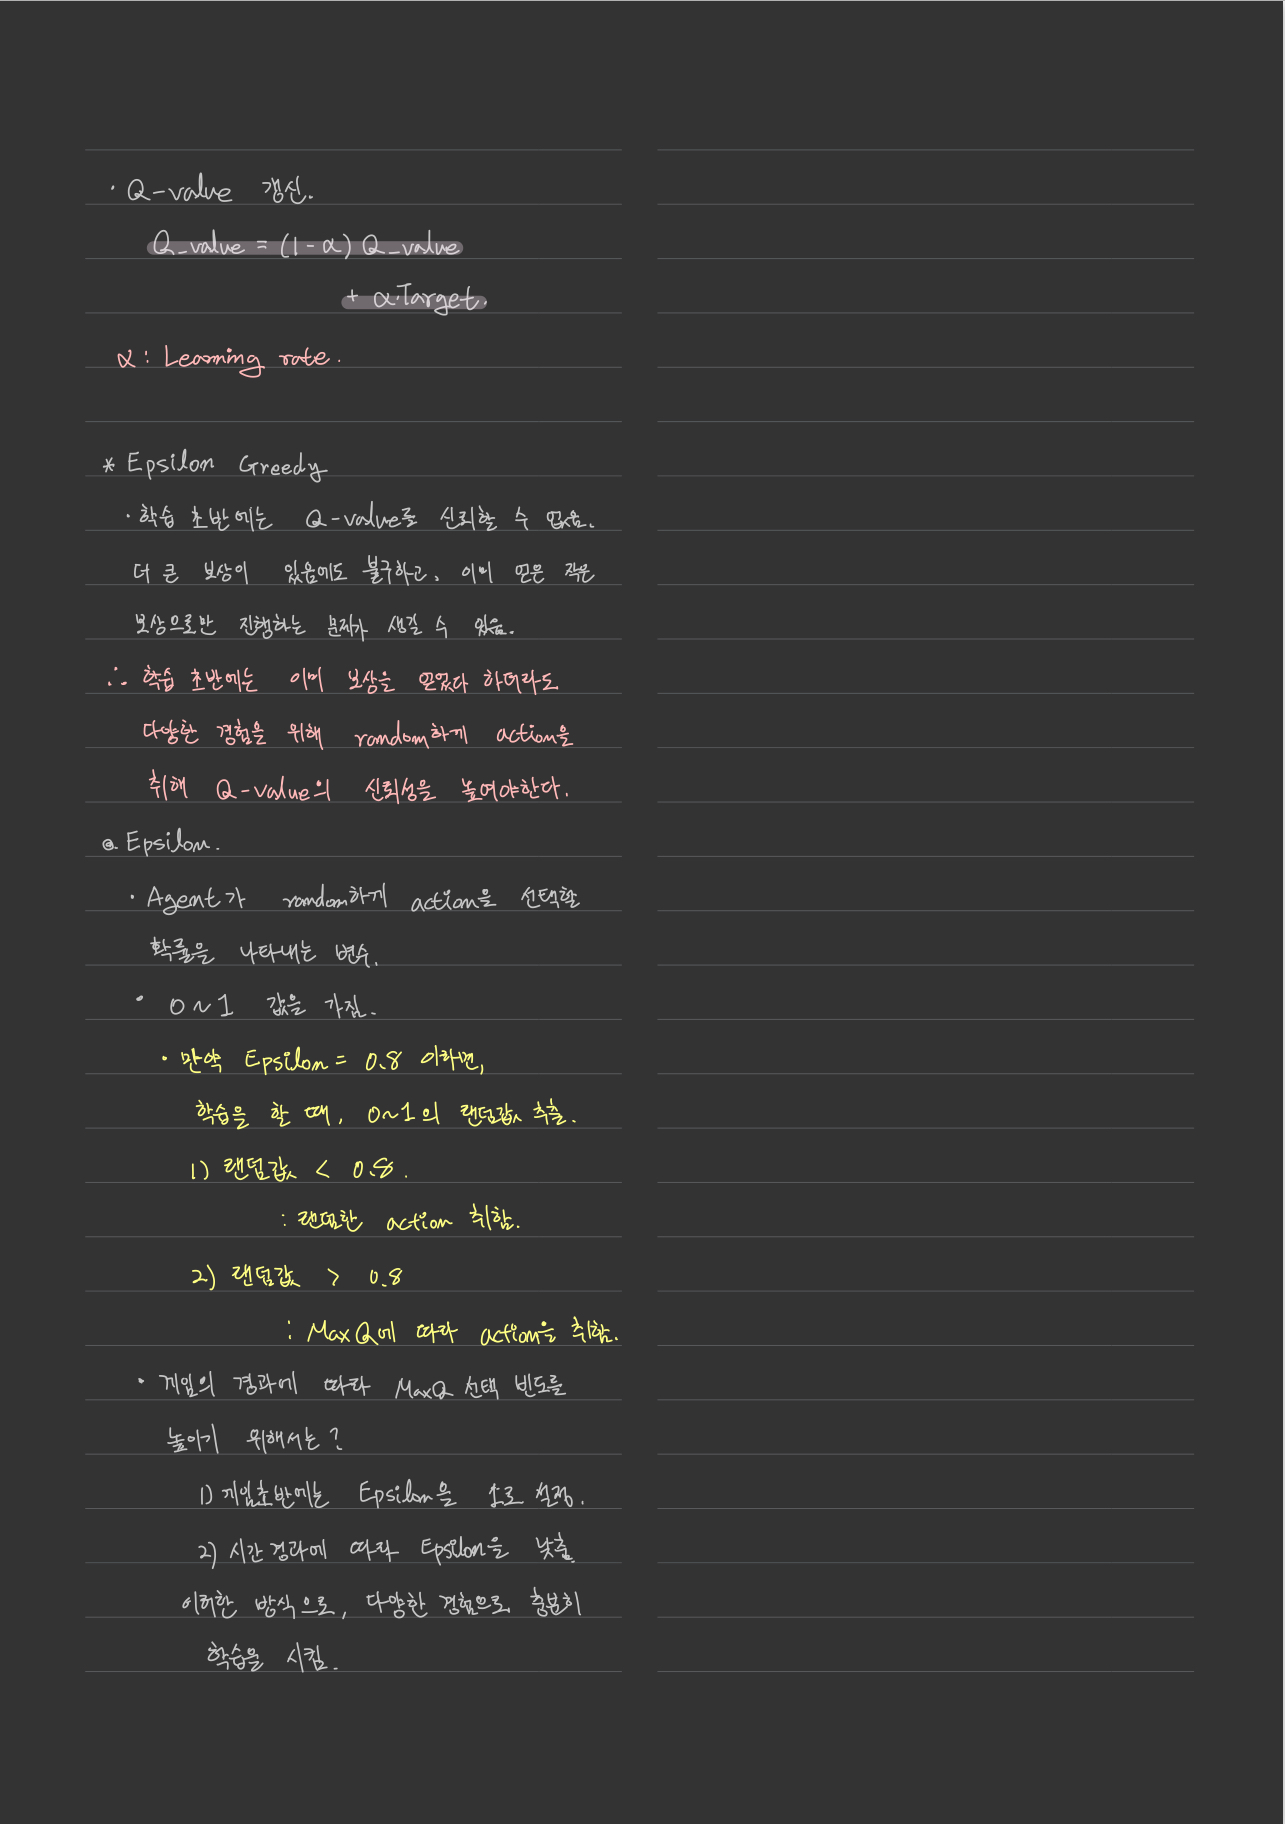 · Q-value 갱신.
Q_value = (1-α) Q_value
+ α·Target.
α : Learning rate.
* Epsilon Greedy
· 학습 초반에는 Q-value를 신뢰할 수 없음.
더 큰 보상이 있음에도 불구하고, 이미 얻은 작은
보상으로만 진행하는 문제가 생길 수 있음.
∴ 학습 초반에는 이미 보상을 얻었다 하더라도
다양한 경험을 위해 random하게 action을
취해 Q-value의 신뢰성을 높여야한다.
@. Epsilon.
· Agent가 random하게 action을 선택할
확률을 나타내는 변수.
· 0~1 값을 가짐.
· 만약 Epsilon = 0.8 이라면,
학습을 할 때, 0~1의 랜덤값 추출.
1) 랜덤값 < 0.8.
: 랜덤한 action 취함.
2) 랜덤값 > 0.8
: MaxQ에 따라 action을 취함.
· 게임의 경과에 따라 MaxQ 선택 빈도를
높이기 위해서는?
1) 게임초반에는 Epsilon을 1로 설정.
2) 시간경과에 따라 Epsilon을 낮춤.
이러한 방식으로, 다양한 경험으로 충분히
학습을 시킴.